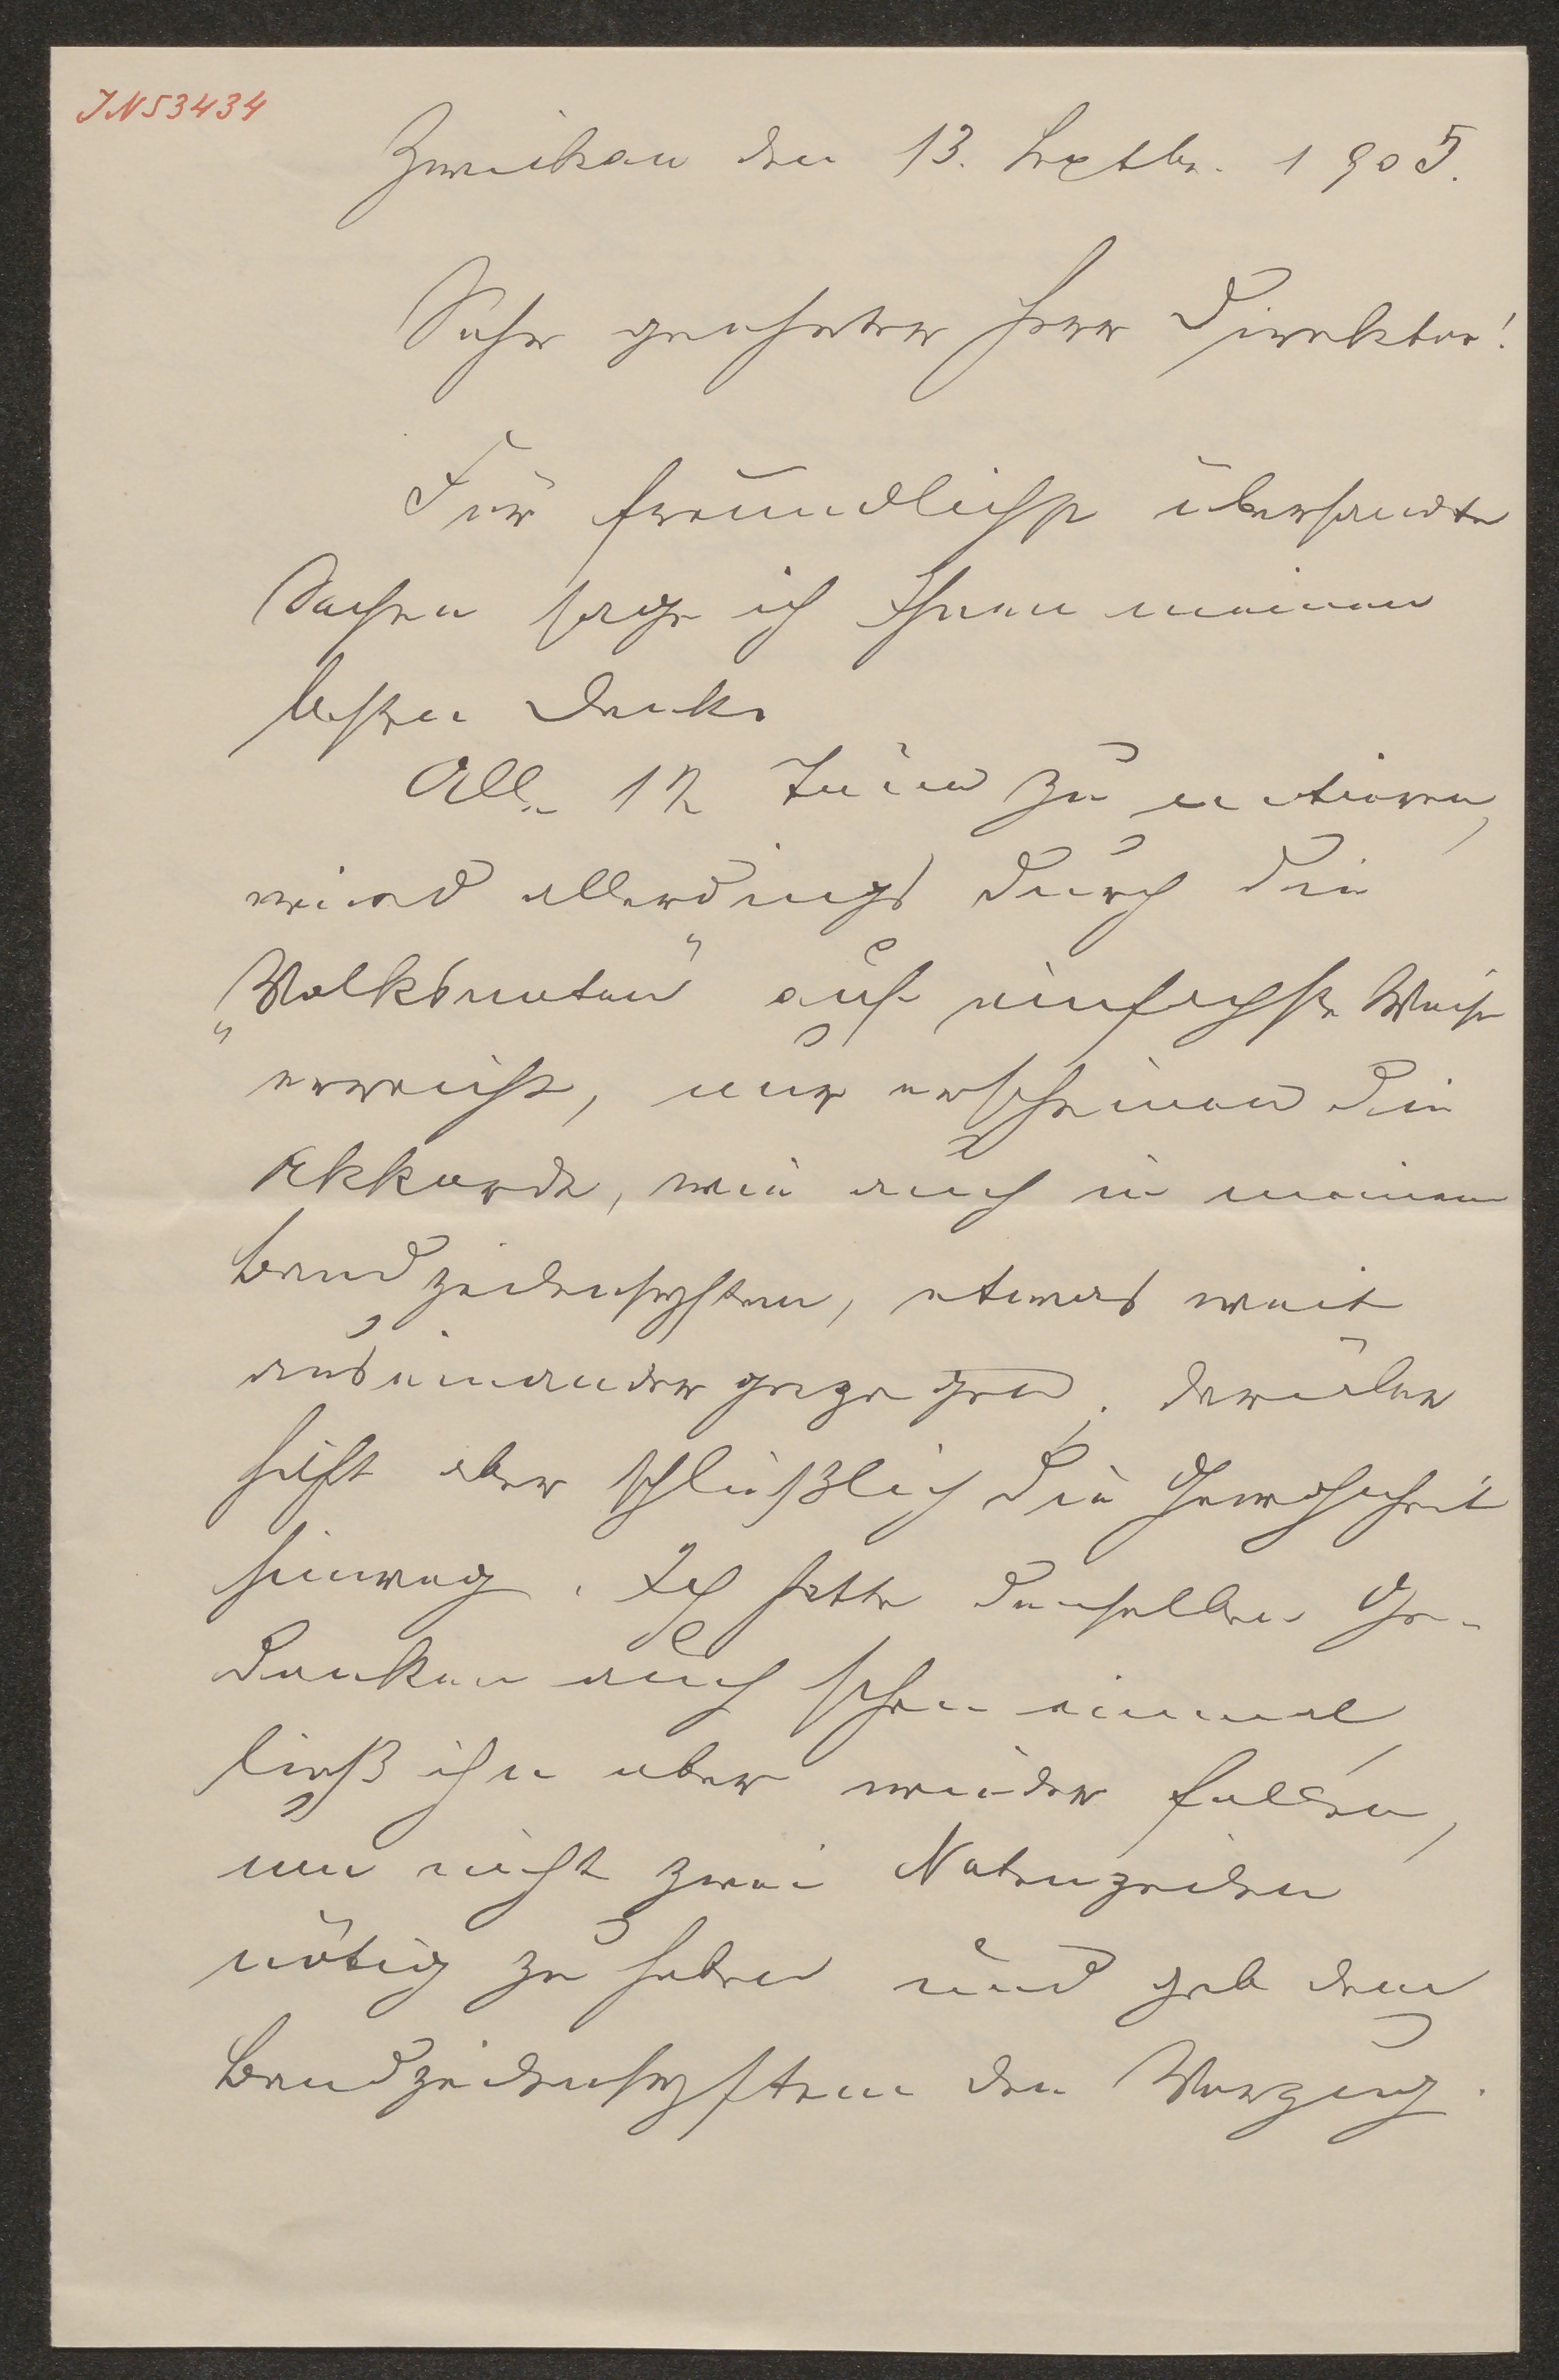 JN 53434
Zwickau den 13. Septbr. 1905.
Sehr geehrter Herr Direktor!
Für freundlichst übersandte
Sachen sage ich Ihnen meinen
besten Dank.
Alle 12 Töne zu notieren,
wird allerdings durch die
„Volksnoten" auf einfachste Weise
erreicht, nur erscheinen die
Akkorde, wie auch in meinem
systeme, etwas weit
auseinandergezogen. Darüber
hilft aber schließlich die Gewohnheit
hinweg. Ich hatte denselben Ge-
danken auch schon einmal
ließ ihn aber wieder fallen,
um nicht zwei Notenzeilen
nötig zu haben und gab dem
systeme den Vorzug.